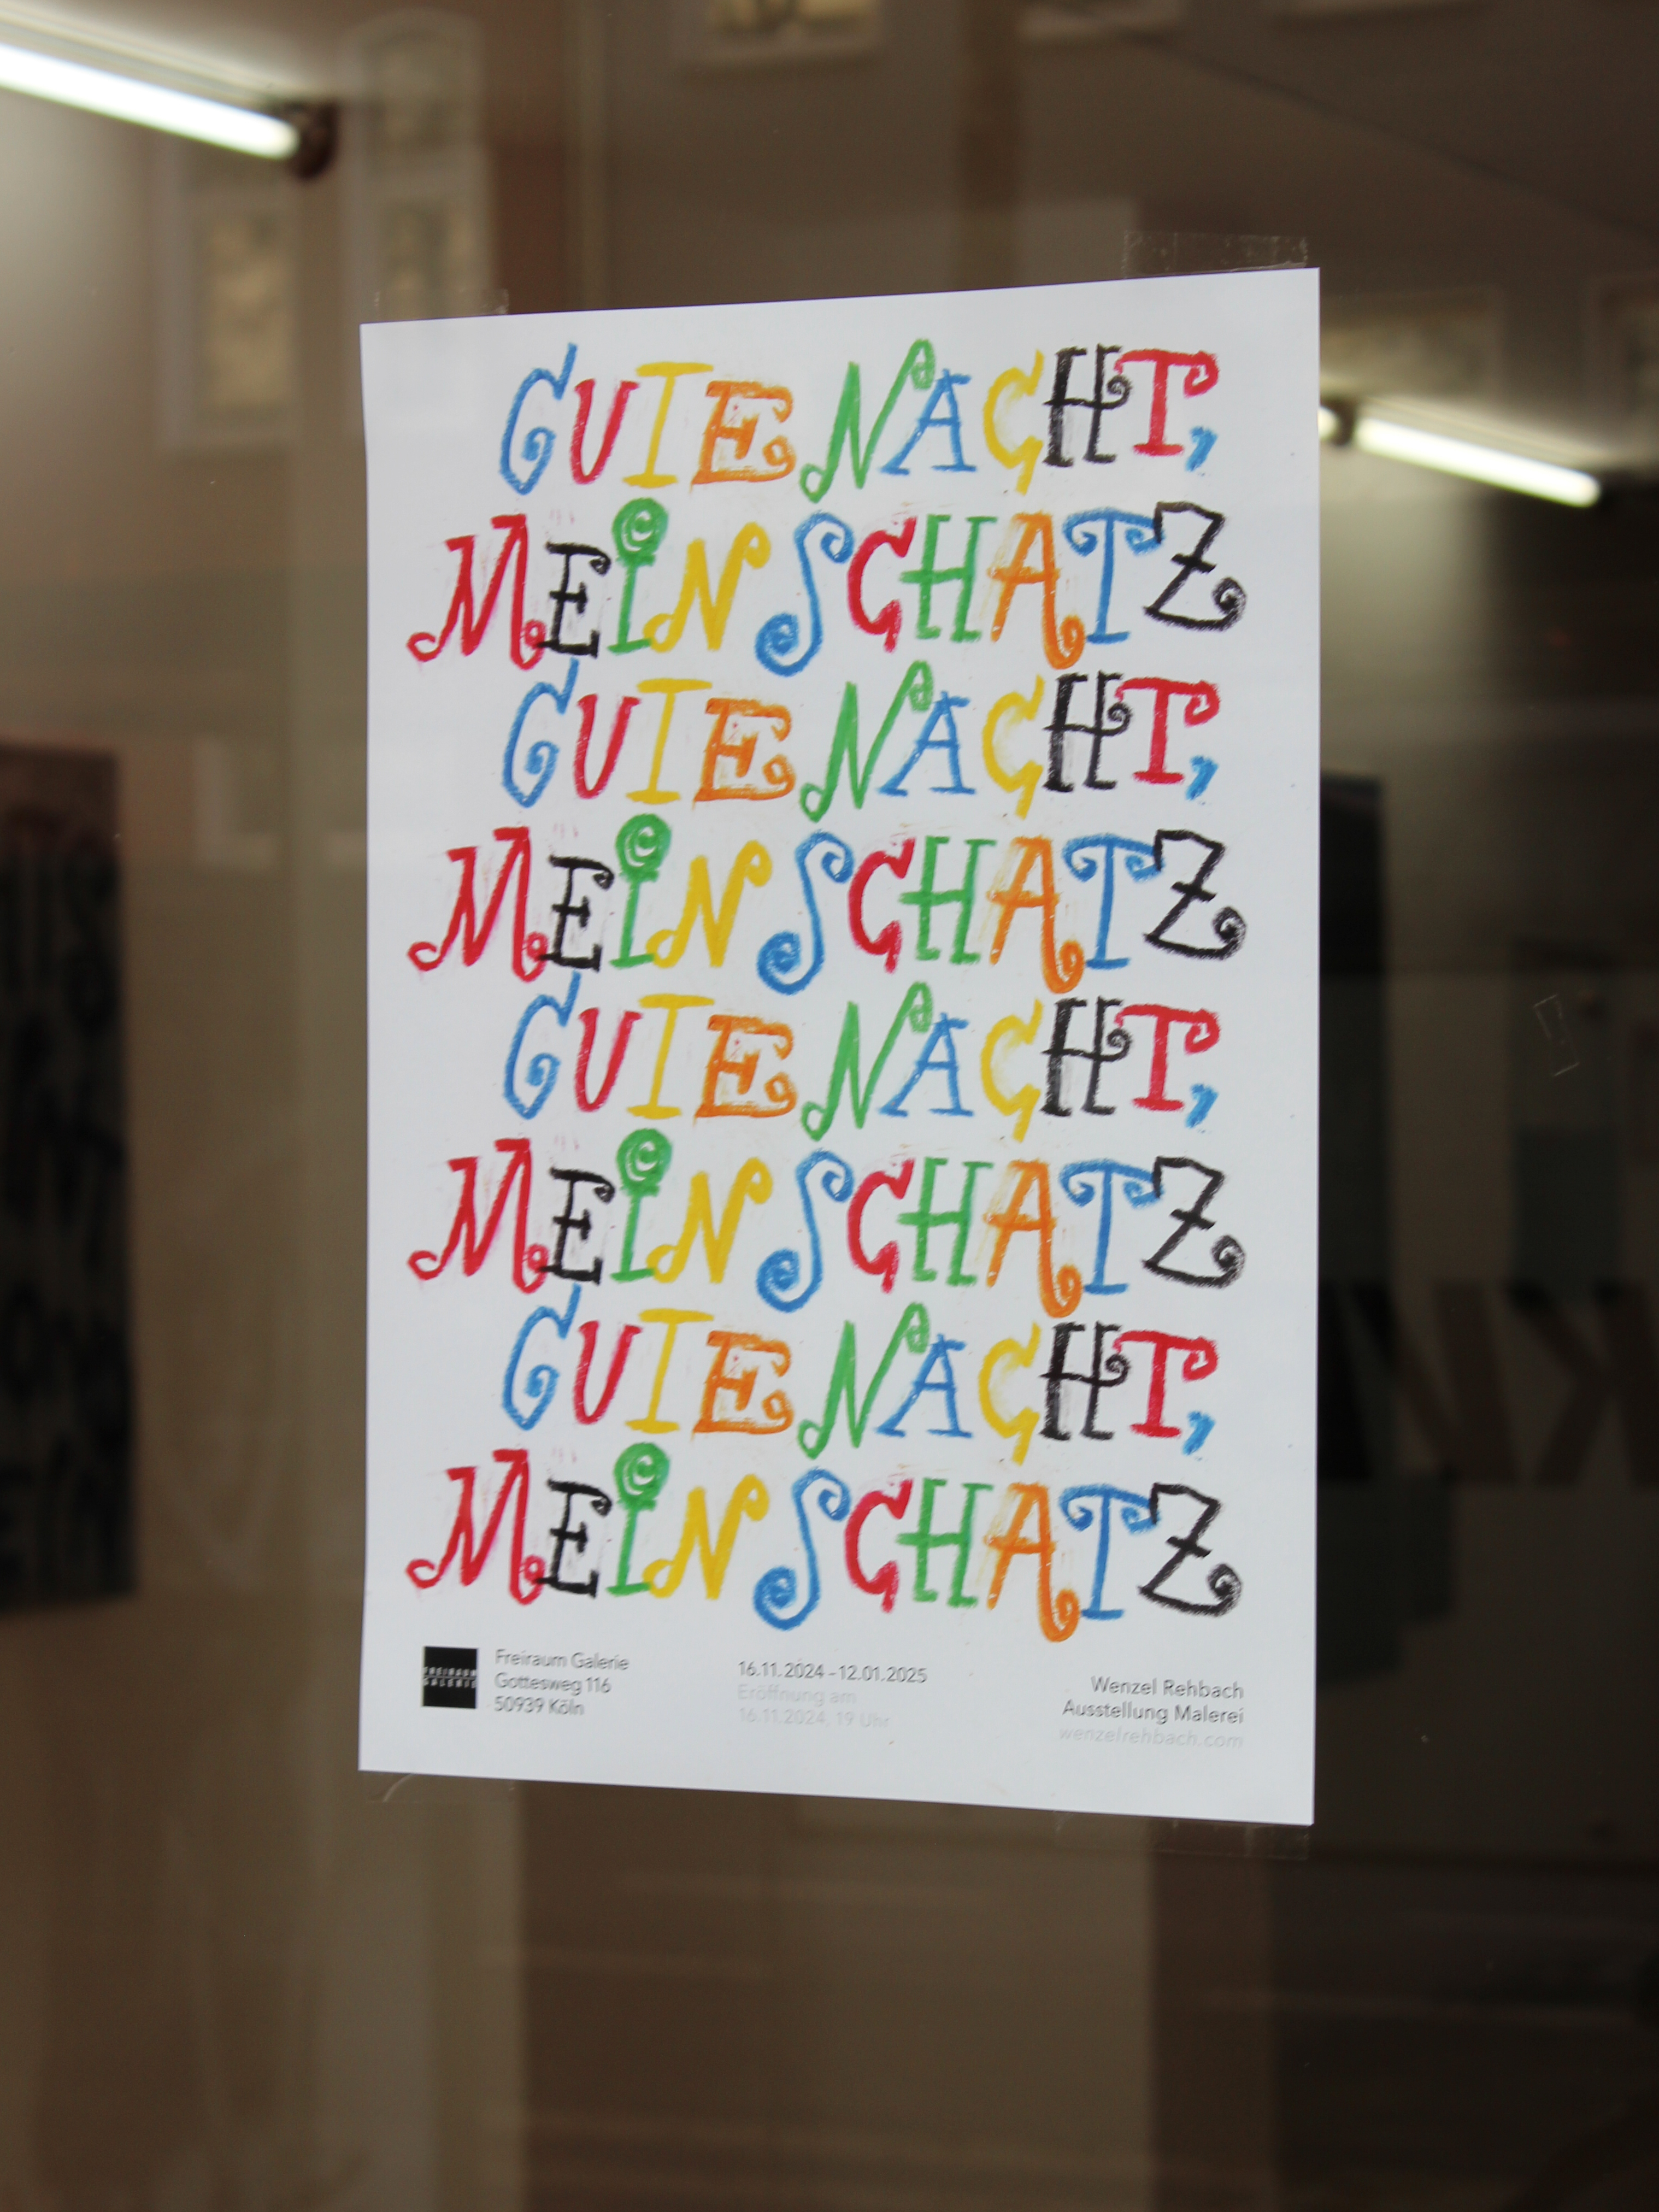 GUTE NACHT,
MEIN SCHATZ
GUTE NACHT,
MEIN SCHATZ
GUTE NACHT,
MEIN SCHATZ
GUTE NACHT,
MEIN SCHATZ
FREIRAUM
GALERIE
Freiraum Galerie
Gottesweg 116
50939 Köln
16.11.2024 – 12.01.2025
Eröffnung am
16.11.2024, 19 Uhr
Wenzel Rehbach
Ausstellung Malerei
wenzelrehbach.com